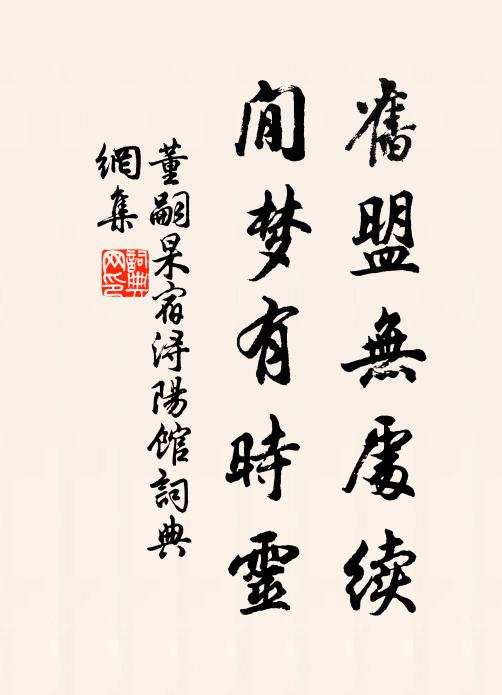 舊盟無處续
閒梦有時靈
董嗣杲宿浔陽馆詞典
網集
詞典
网印